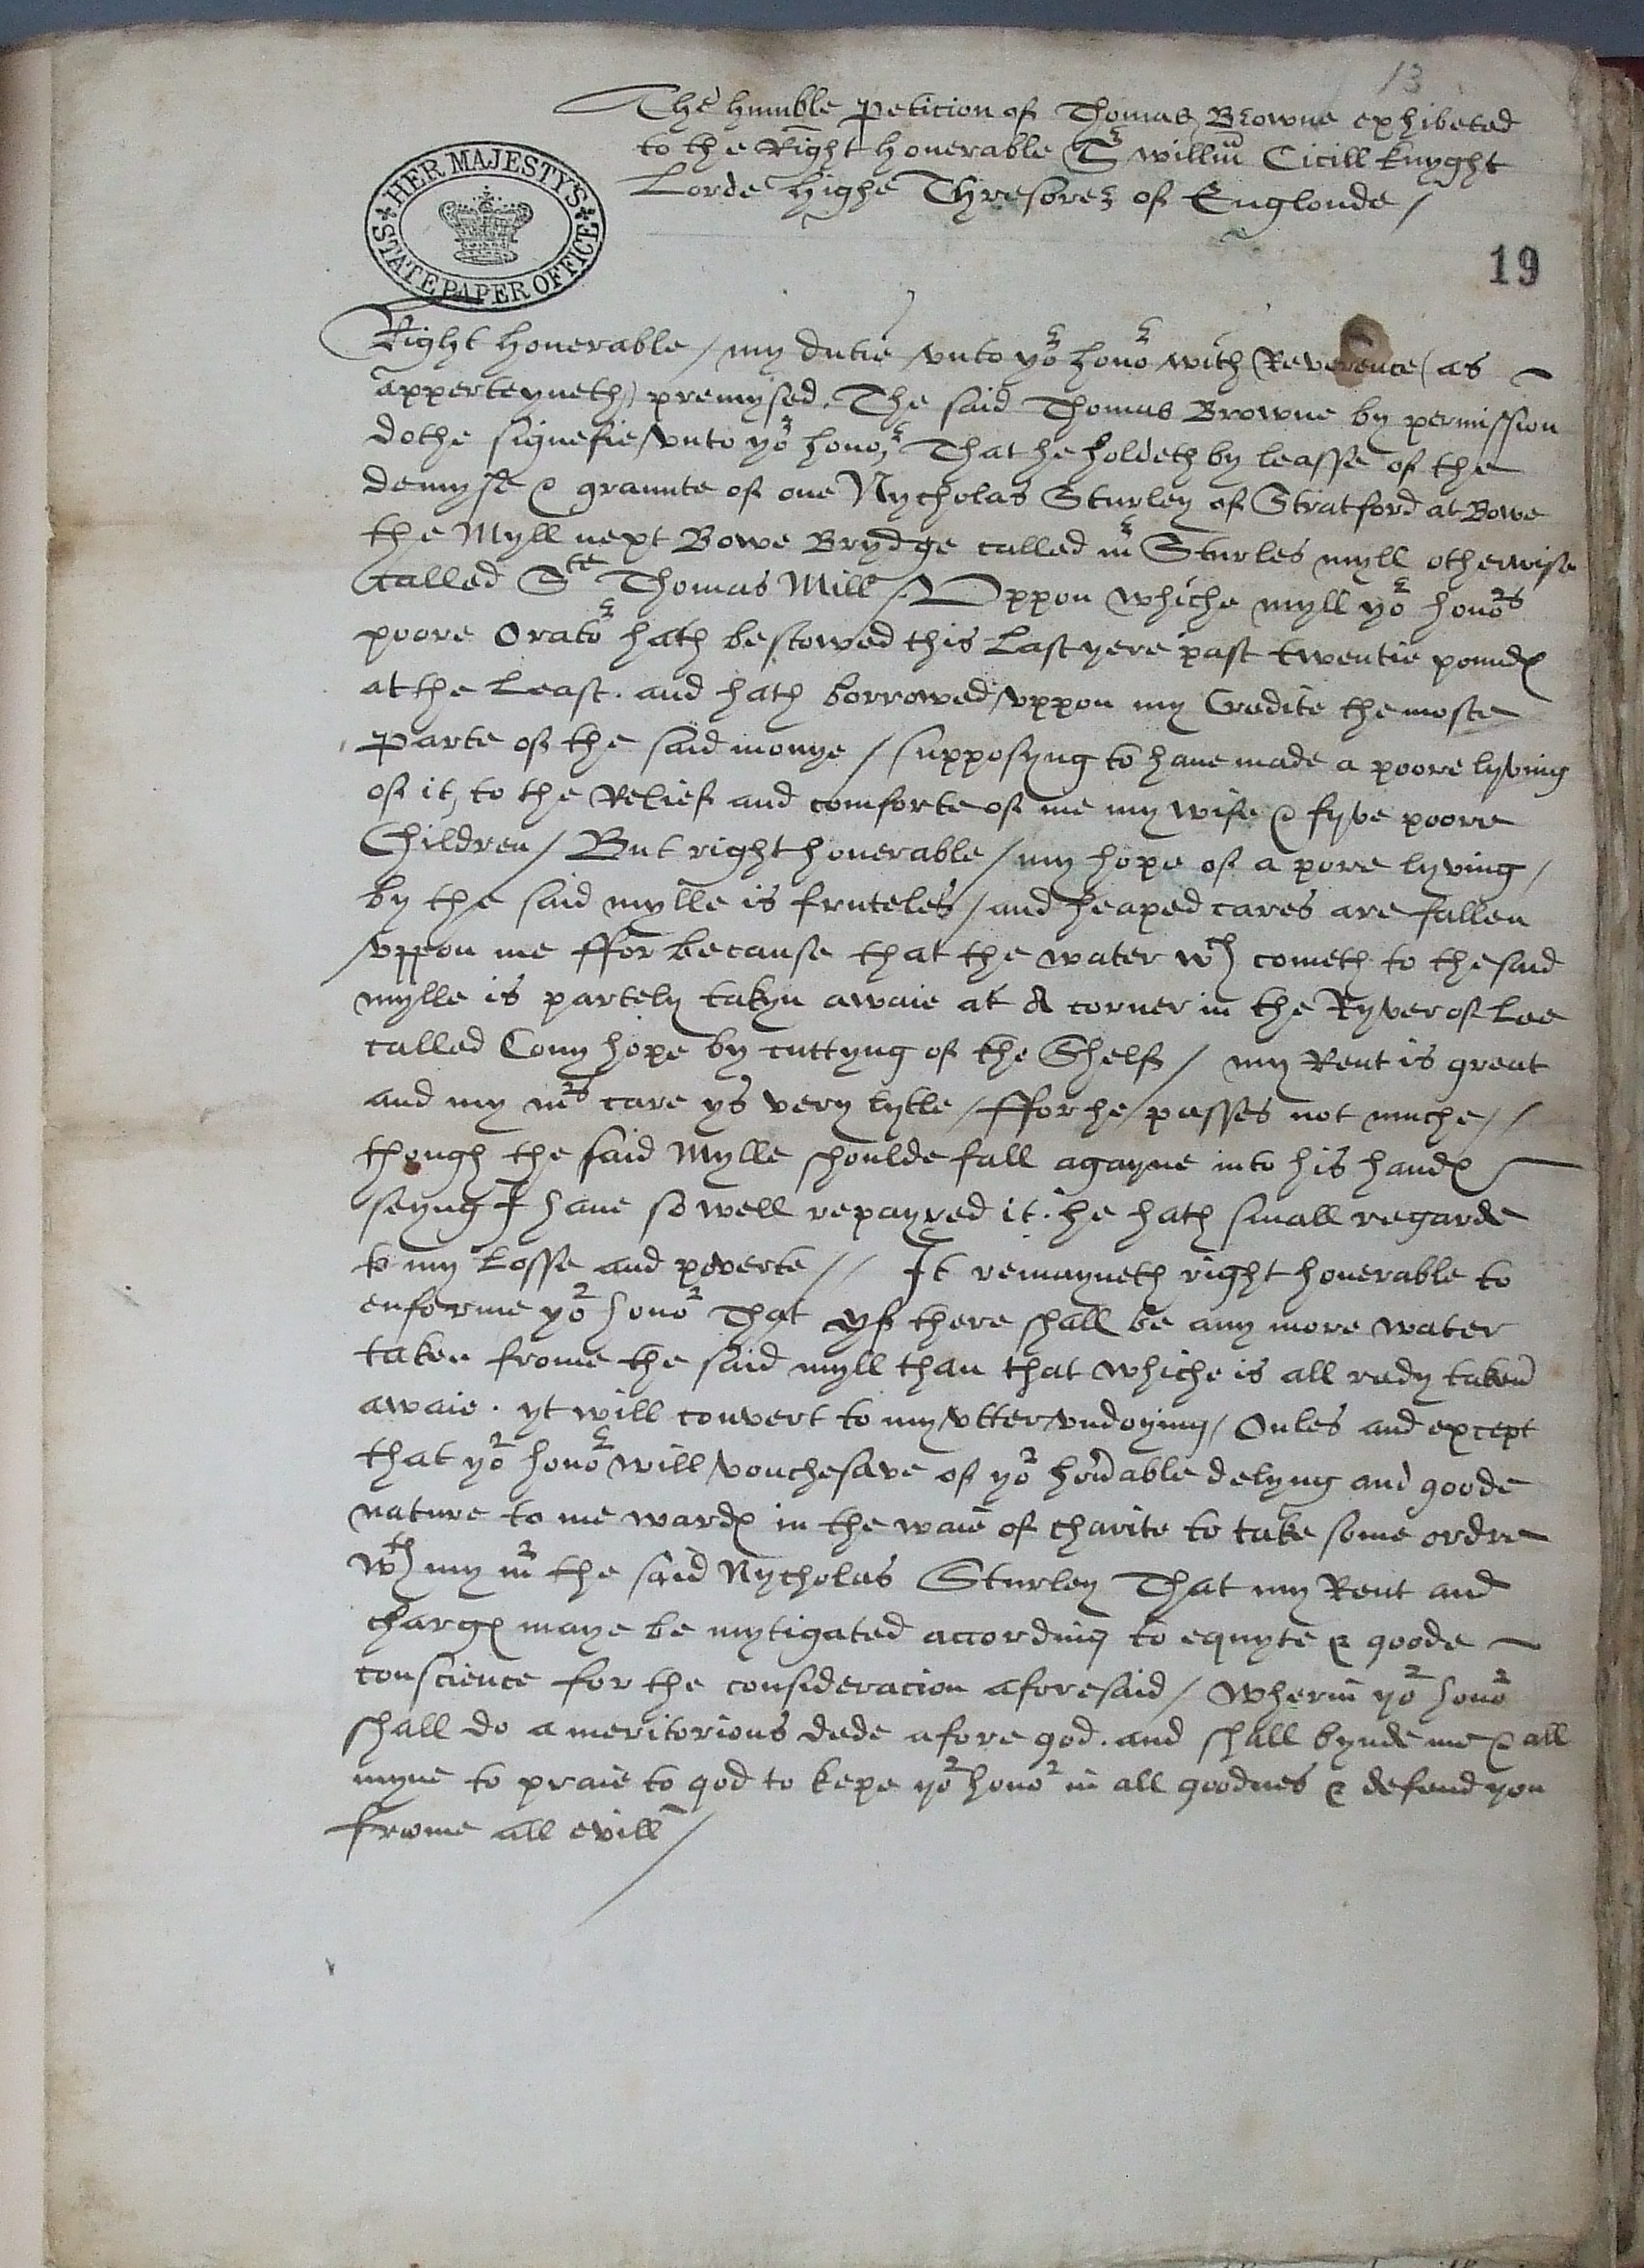 13
The humble peticion of Thomas Browne exhibeted
to the Right honerable Sr willm Cicill knyght
Lorde highe Thresorer of Englonde /
HER MAJESTY'S
STATE PAPER OFFICE
19
Right honerable / my dutie vnto yor honor with Reverence (as
apperteyneth) premysed. The said Thomas Browne by permission
dothe signefie vnto yor honor, That he holdeth by leasse of the
demyse & graunte of one Nycholas Sturley of Stratford at Bowe
the Myll next Bowe Brydge called mr Sturles myll otherwise
called Ste Thomas Mill / Uppon whiche myll yor honors
poore Orator hath bestowed this Last yere past twentie poundes
at the Least. and hath borrowed vppon my Credite the moste
parte of the said monye / supposyng to haue made a poore lyving
of it, to the Relief and comforte of me my wife & fyve poore
Children / But right honerable / my hope of a pore lyving /
by the said mylle is fruteles / and heaped cares are fallen
vppon me ffor because that the water wch cometh to the said
mylle is partely takyn awaie at A corner in the Ryver of Lee
called Cony hope by cuttyng of the Shelf / my Rent is great
and my mrs care ys very lytle / ffor he passes not muche //
though the said Mylle shoulde fall agayne into his handes
seyng I haue so well repayred it. he hath small regarde
to my Losse and poverte // It remayneth right honerable to
enforme yor honor That yf there shall be any more water
taken frome the said myll than that whiche is all redy taken
awaie. yt will convert to my vtter vndoying / Onles and except
that yor honor will vouchesave of yor honorable delyng and goode
nature to me wardes in the waie of charite to take some ordre
wth my mr the said Nycholas Sturley That my Rent and
charges maye be mytigated according to equyte & goode
conscience for the consideracion aforesaid / Wherin yor honor
shall do a meritorious dede afore god. and shall bynde me & all
myne to praie to god to kepe yor honor in all goodnes & defend you
frome all evill /